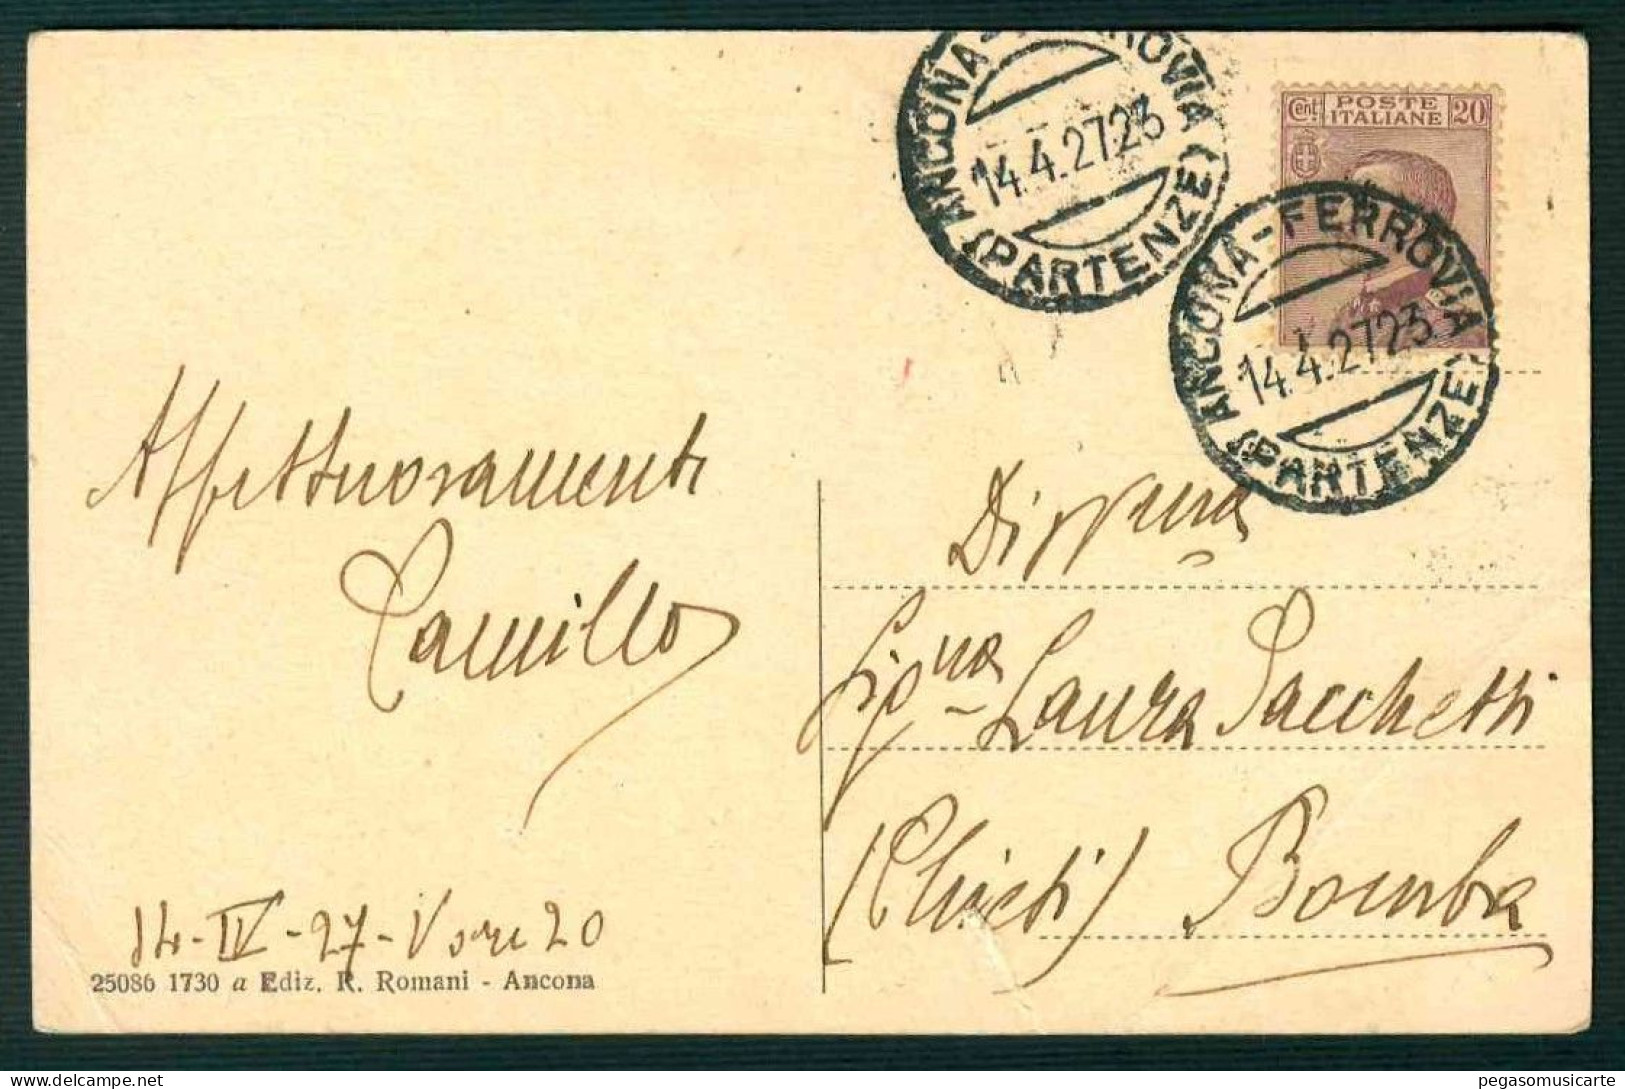 ANCONA-FERROVIA
14.4.27 23
(PARTENZE)
Cent. POSTE ITALIANE 20
ANCONA-FERROVIA
14.4.27 23
(PARTENZE)
Affettuosamente
Camillo
14-IV-27-V ore 20
25086 1730 a Ediz. R. Romani - Ancona
Sigᶰᵃ Laura Pacchetti
(Chieti) Bomba
pegasomusicarte